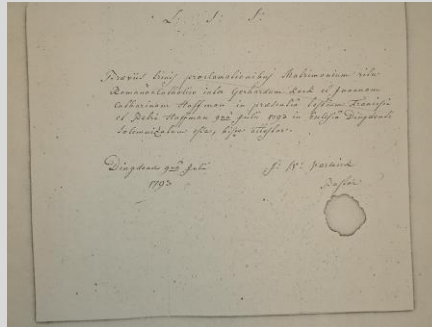 L. I. S.
Praeviis trinis proclamationibus Matrimonium ritu
Romanocatholico inter Gerhardum Kock et Joannam
Catharinam Hoffman in praesentia testium Francisci
et Petri Hoffman 922 Julii 1793 in Ecclesia Dingdensi
solemnizatum esse, hisce attestor.
Dingdens 922 Julii
1793
J: W:
Pastor